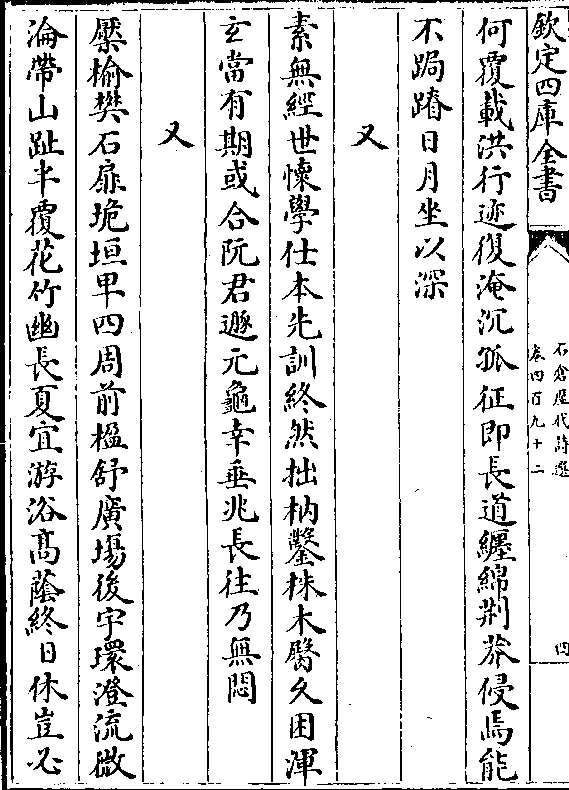 欽定四庫全書
石倉歷代詩選
卷四百九十二
四
何覆載洪行迹復淹沉孤征即長道纏綿荆莽侵焉能
不跼蹐日月坐以深
又
素無經世懐學仕本先訓終然拙枘鑿株木臀久困渾
玄當有期或合阮君遯元龜幸垂兆長往乃無悶
又
檿榆樊石扉垝垣卑四周前楹舒廣塲後宇環澄流微
淪帶山趾半覆花竹幽長夏宜游浴髙蔭終日休豈必